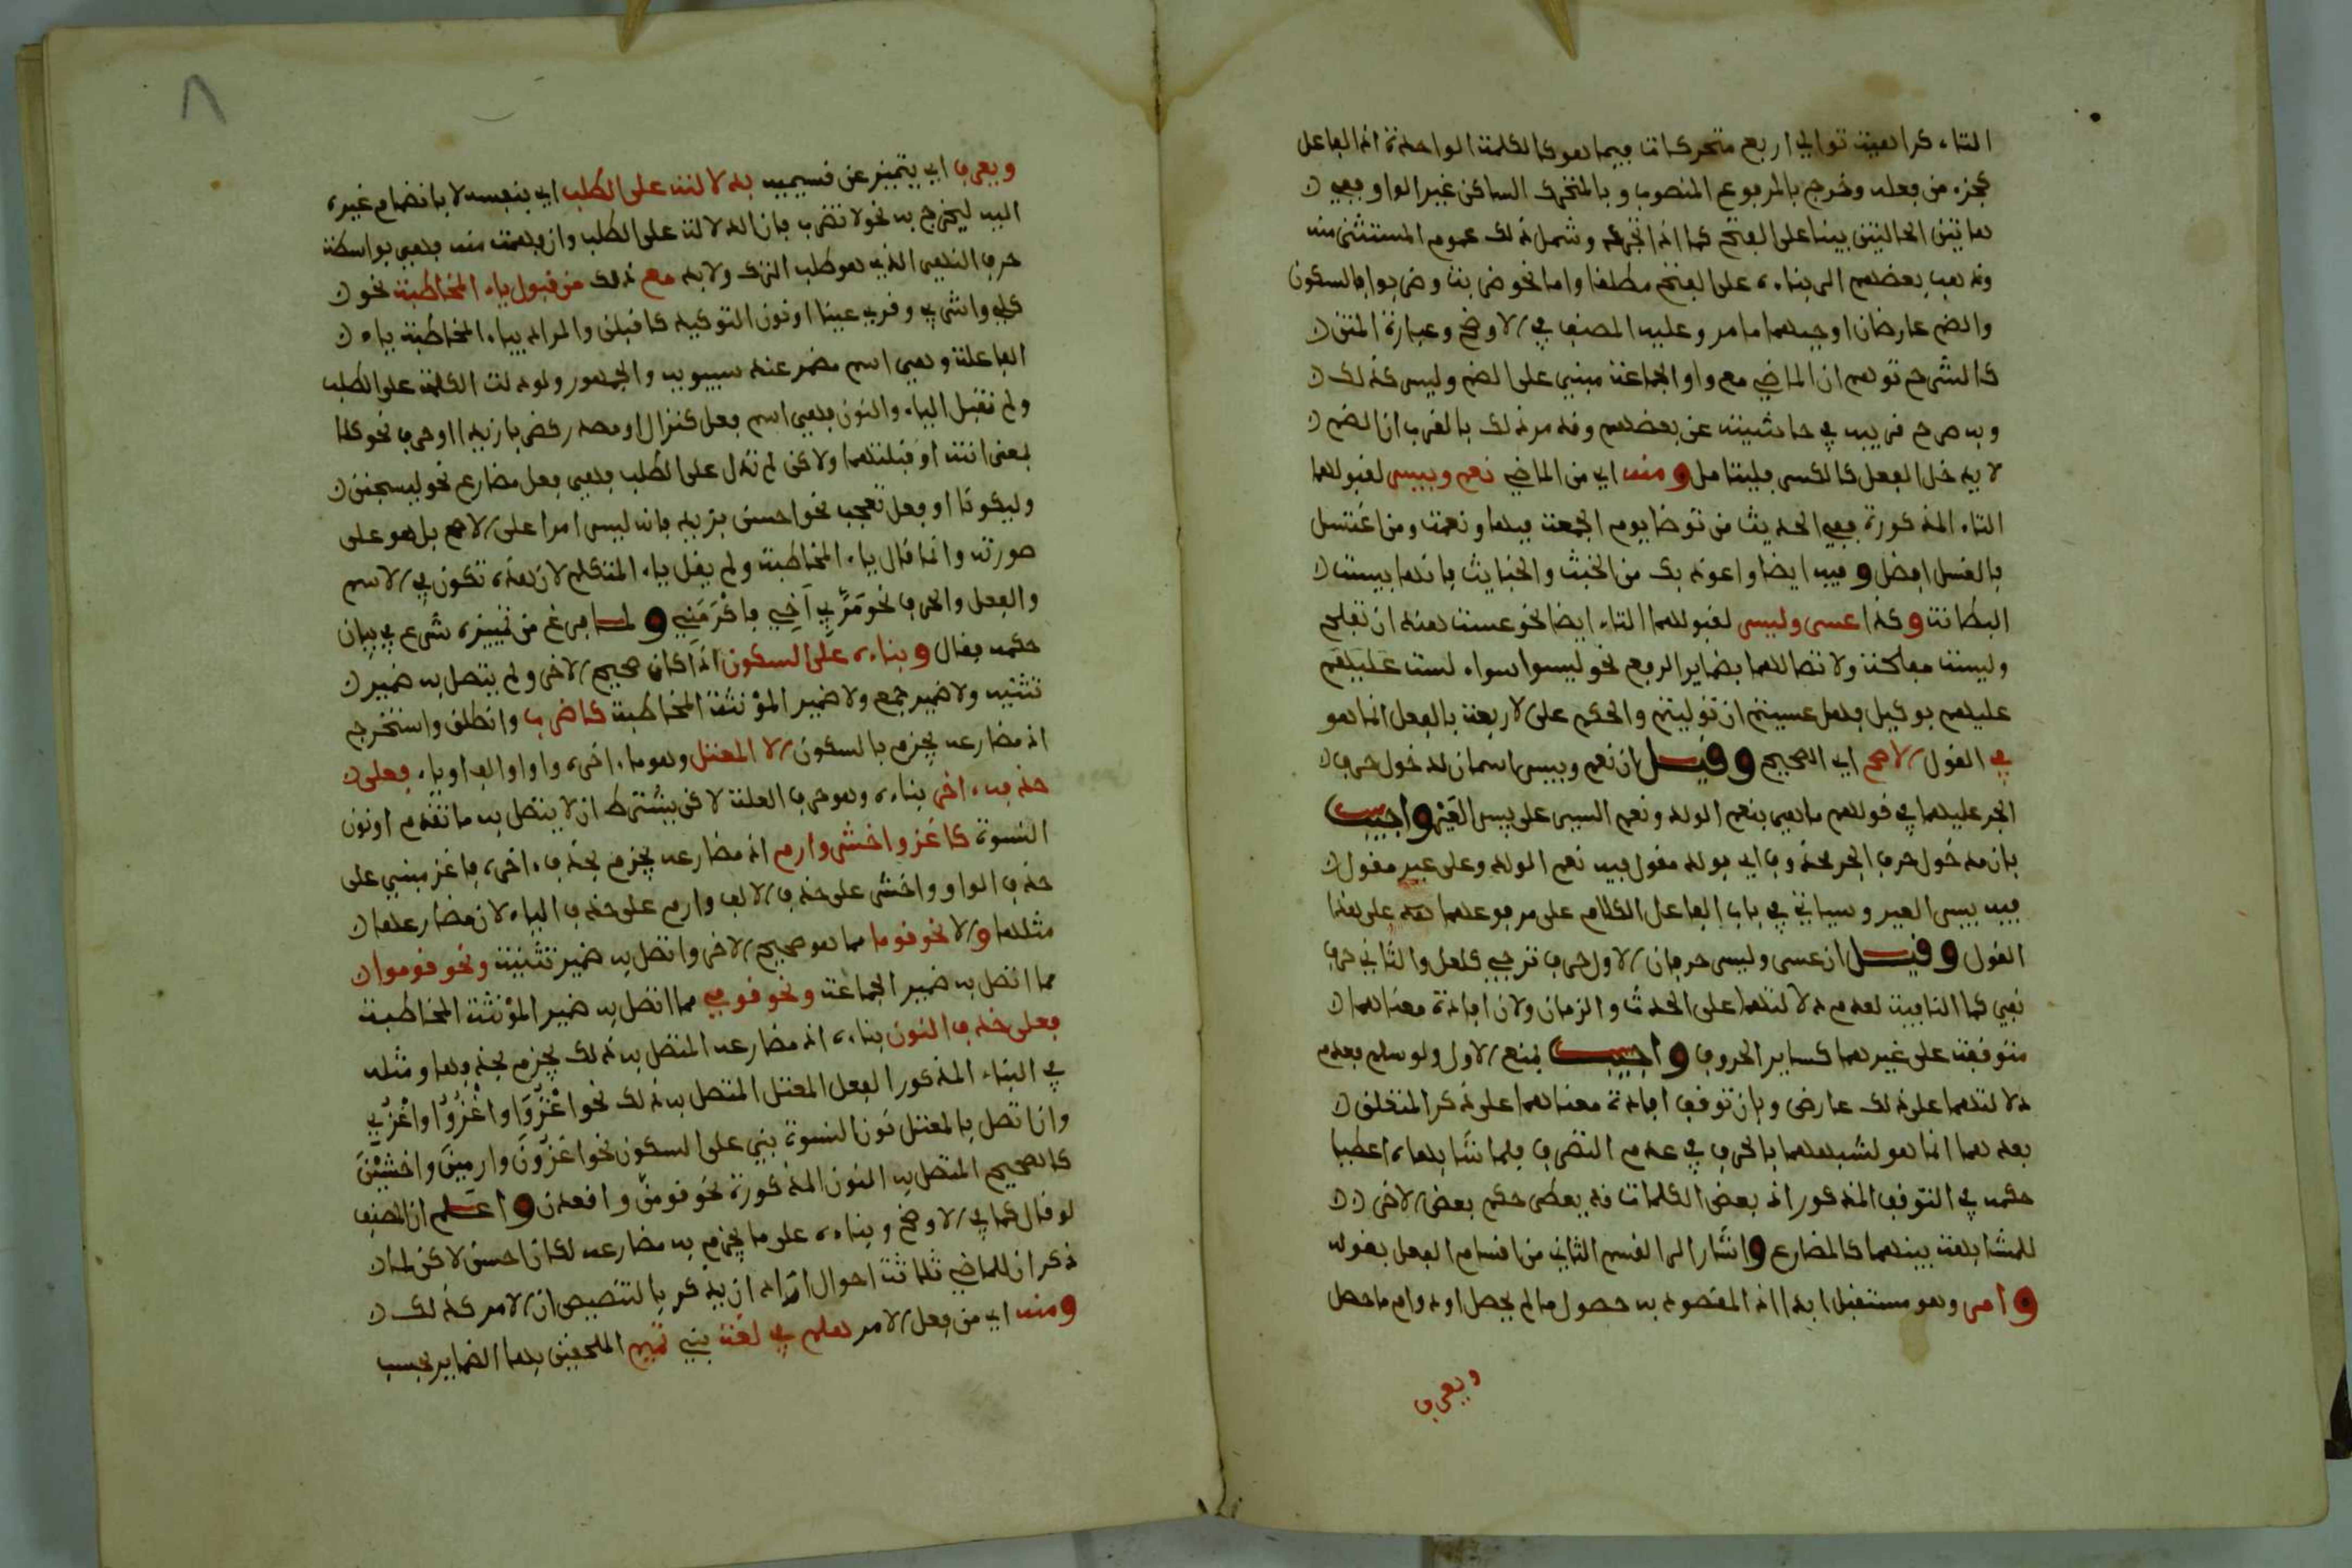 التاء كراهية توالي اربع متحركات فيما هو كالكلمة الواحدة اذ الفاعل
كجزء من فعله وخرج بالمرفوع المنصوب وبالمتحرك الساكن غير الواو ففي
هاتين الحالتين يبنا على الفتح كما اذا تجرد وشمل ذلك عموم المستثنى منه
وذهب بعضهم الى بناءه على الفتح مطلقا واما نحو ضربت وضربوا فالسكون
والضم عارضان اوجبهما ما مر وعليه المصنف في الاوضح وعبارة المتن
كالشرح توهم ان الماضي مع واو الجماعة مبني على الضم وليس كذلك
وبه صرح قريبه في حاشيته عن بعضهم وقد مر ذلك بالقرب ان الضم
لا يدخل الفعل كالكسر فليتامل ومنه اي من الماضي نعم وبيس لقبولهما
التاء المذكورة ففي الحديث من توضا يوم الجمعة فبها ونعمت ومن اغتسل
فالغسل افضل وفيه ايضا واعوذ بك من الخبث والخبايث فانها بيست
البطانة وكذا عسى وليس لقبولهما التاء ايضا نحو عست هند ان تفلح
وليست مفلحة ولاتصالهما بضماير الرفع نحو ليسوا سواء لست عليهم
عليهم بوكيل فهل عسيتم ان توليتم والحكم على الاربعة بالفعل انما هو
في القول الاصح اي الصحيح وقيل ان نعم وبيس اسمان لدخول حرف
الجر عليهما في قولهم ما هي بنعم الولد ونعم السير على بيس العير واجيب
بان مدخول حرف الجر محذوف اي بولد مقول فيه نعم الولد وعلى عير مقول
فيه بيس العير وسياتي في باب الفاعل الكلام على مرفوعهما على هذا
القول وقيل ان عسى وليس حرفان الاول حرف ترجي كلعل والثاني حرف
نفي كما النافية لعدم دلالتهما على الحدث والزمان ولان افادة معناهما
متوقفة على غيرهما كساير الحروف واجيب بمنع الاول ولو سلم فعدم
دلالتهما على ذلك عارض وبان توقف افادة معناهما على ذكر المتعلق
بعدهما انما هو لشبههما بالحرف في عدم التصرف فلما شابهاه اعطيا
حكمه في التوقف المذكور اذ بعض الكلمات قد يعطى حكم بعض الاخر
للمشابهة بينهما كالمضارع واشار الى القسم الثاني من اقسام الفعل بقوله
وامر وهو مستقبل ابدا اذ المقصود به حصول ما لم يحصل او دوام ما حصل
ويعرف
٨
ويعرف اي يتميز عن قسيميه بدلالته على الطلب اي بنفسه لا بانضمام غيره
اليه ليخرج به نحو لا تضرب فان الدلالة على الطلب وان فهمت منه فهي بواسطة
حرف النهي الذي هو طلب الترك ولا بد مع ذلك من قبول ياء المخاطبة نحو
كلي واشربي وقري عينا او نون التوكيد كاقبلن والمراد بياء المخاطبة ياء
الفاعلة وهي اسم مضمر عند سيبويه والجمهور ولو دلت الكلمة على الطلب
ولم تقبل الياء والنون فهي اسم فعل كنزال او مصدر كضربا زيدا او حرف نحو كلا
بمعنى انته او قبلتهما ولاكن لم تدل على الطلب فهي فعل مضارع نحو ليسجنن
وليكونا او فعل تعجب نحو احسن بزيد فانه ليس امرا على الاصح بل هو على
صورته وانما قال ياء المخاطبة ولم يقل ياء المتكلم لان هذه تكون في الاسم
والفعل والحرف نحو مر بي اخي فاكرمني ولما فرغ من تمييزه شرع في بيان
حكمه فقال وبناءه على السكون اذا كان صحيح الاخر ولم يتصل به ضمير
تثنيه ولا ضمير جمع ولا ضمير المؤنثة المخاطبة كاضرب وانطلق واستخرج
اذ مضارعه يجزم بالسكون الا المعتل وهو ما اخره واو او الف او ياء فعلى
حذف اخر بناءه وهو حرف العلة لاكن يشترط ان لا يتصل به ما تقدم او نون
النسوة كاغز واخش وارم اذ مضارعه يجزم بحذف اخره فاغز مبني على
حذف الواو واخش على حذف الالف وارم على حذف الياء لان مضارعها
مثلها والا نحو قوما مما هو صحيح الاخر واتصل به ضمير تثنية ونحو قوموا
مما اتصل به ضمير الجماعة ونحو قومي مما اتصل به ضمير المؤنثة المخاطبة
فعلى حذف النون بناءه اذ مضارعه المتصل به ذلك يجزم بحذفها ومثله
في البناء المذكور الفعل المعتل المتصل به ذلك نحو اغزوا واغزوا واغزي
وان اتصل بالمعتل نون النسوة بني على السكون نحو اغزون وارمين واخشين
كالصحيح المتصل به النون المذكورة نحو قومن واقعدن واعلم ان المصنف
لو قال كما في الاوضح وبناءه على ما يجزم به مضارعه لكان احسن لاكن لما
ذكر ان للماضي ثلاثة احوال اراد ان يذكر بالتنصيص ان الامر كذلك
ومنه اي من فعل الامر هلم في لغة بني تميم الملحقين بها الضماير بحسب